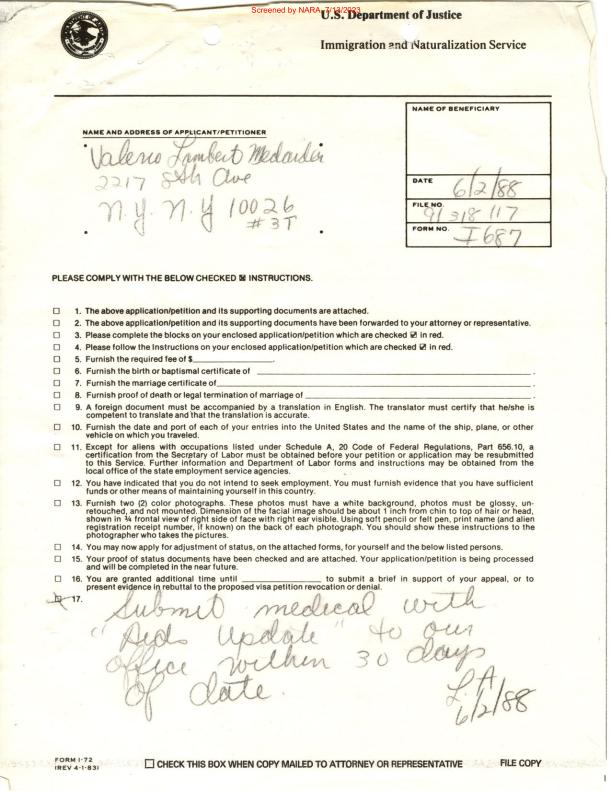 Screened by NARA, 7/13/2023
U.S. Department of Justice
Immigration and Naturalization Service
NAME OF BENEFICIARY
NAME AND ADDRESS OF APPLICANT/PETITIONER
Valerio Lambert
2217 8th Ave
N.Y. N.Y 10026
# 3T
DATE 6/2/88
FILE NO. 91 318 117
FORM NO. I 687
PLEASE COMPLY WITH THE BELOW CHECKED ☒ INSTRUCTIONS.
☐ 1. The above application/petition and its supporting documents are attached.
☐ 2. The above application/petition and its supporting documents have been forwarded to your attorney or representative.
☐ 3. Please complete the blocks on your enclosed application/petition which are checked ☑ in red.
☐ 4. Please follow the Instructions on your enclosed application/petition which are checked ☑ in red.
☐ 5. Furnish the required fee of $____________.
☐ 6. Furnish the birth or baptismal certificate of ____________.
☐ 7. Furnish the marriage certificate of____________.
☐ 8. Furnish proof of death or legal termination of marriage of ____________.
☐ 9. A foreign document must be accompanied by a translation in English. The translator must certify that he/she is
competent to translate and that the translation is accurate.
☐ 10. Furnish the date and port of each of your entries into the United States and the name of the ship, plane, or other
vehicle on which you traveled.
☐ 11. Except for aliens with occupations listed under Schedule A, 20 Code of Federal Regulations, Part 656.10, a
certification from the Secretary of Labor must be obtained before your petition or application may be resubmitted
to this Service. Further information and Department of Labor forms and instructions may be obtained from the
local office of the state employment service agencies.
☐ 12. You have indicated that you do not intend to seek employment. You must furnish evidence that you have sufficient
funds or other means of maintaining yourself in this country.
☐ 13. Furnish two (2) color photographs. These photos must have a white background, photos must be glossy, un-
retouched, and not mounted. Dimension of the facial image should be about 1 inch from chin to top of hair or head,
shown in ¾ frontal view of right side of face with right ear visible. Using soft pencil or felt pen, print name (and alien
registration receipt number, if known) on the back of each photograph. You should show these instructions to the
photographer who takes the pictures.
☐ 14. You may now apply for adjustment of status, on the attached forms, for yourself and the below listed persons.
☐ 15. Your proof of status documents have been checked and are attached. Your application/petition is being processed
and will be completed in the near future.
☐ 16. You are granted additional time until ____________ to submit a brief in support of your appeal, or to
present evidence in rebuttal to the proposed visa petition revocation or denial.
☒ 17. Submit medical with
"Aids Update" to our
office within 30 days
of date.
L.A
6/2/88
FORM I-72
(REV 4-1-83)
☐ CHECK THIS BOX WHEN COPY MAILED TO ATTORNEY OR REPRESENTATIVE
FILE COPY